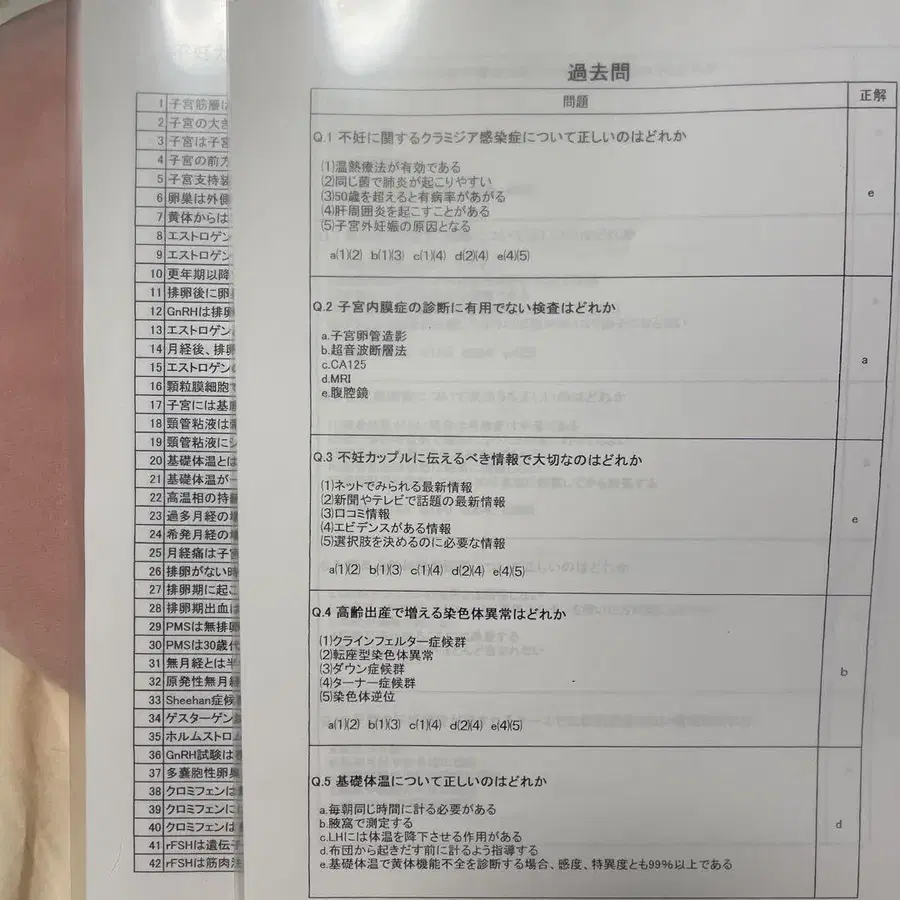 1 子宮筋層は
2 子宮の大き
3 子宮は子宮
4 子宮の前方
5 子宮支持装
6 卵巣は外側
7 黄体からは
8 エストロゲン
9 エストロゲン
10 更年期以降
11 排卵後に卵
12 GnRHは排卵
13 エストロゲン
14 月経後、排卵
15 エストロゲンの
16 顆粒膜細胞で
17 子宮には基底
18 頸管粘液は
19 頸管粘液にシ
20 基礎体温とは
21 基礎体温が一
22 高温相の持続
23 過多月経の
24 希発月経の
25 月経痛は子宮
26 排卵がない時
27 排卵期に起こ
28 排卵期出血は
29 PMSは無排卵
30 PMSは30歳代
31 無月経とは半
32 原発性無月経
33 Sheehan症候
34 ゲスターゲン
35 ホルムストロム
36 GnRH試験は
37 多嚢胞性卵巣
38 クロミフェンは
39 クロミフェンに
40 クロミフェンは
41 rFSHは遺伝子
42 rFSHは筋肉注
過去問
問題 正解
Q.1 不妊に関するクラミジア感染症について正しいのはどれか
(1)温熱療法が有効である
(2)同じ菌で肺炎が起こりやすい
(3)50歳を超えると有病率があがる
(4)肝周囲炎を起こすことがある
(5)子宮外妊娠の原因となる
a(1)(2) b(1)(3) c(1)(4) d(2)(4) e(4)(5)
e
Q.2 子宮内膜症の診断に有用でない検査はどれか
a.子宮卵管造影
b.超音波断層法
c.CA125
d.MRI
e.腹腔鏡
a
Q.3 不妊カップルに伝えるべき情報で大切なのはどれか
(1)ネットでみられる最新情報
(2)新聞やテレビで話題の最新情報
(3)口コミ情報
(4)エビデンスがある情報
(5)選択肢を決めるのに必要な情報
a(1)(2) b(1)(3) c(1)(4) d(2)(4) e(4)(5)
e
Q.4 高齢出産で増える染色体異常はどれか
(1)クラインフェルター症候群
(2)転座型染色体異常
(3)ダウン症候群
(4)ターナー症候群
(5)染色体逆位
a(1)(2) b(1)(3) c(1)(4) d(2)(4) e(4)(5)
b
Q.5 基礎体温について正しいのはどれか
a.毎朝同じ時間に計る必要がある
b.腋窩で測定する
c.LHには体温を降下させる作用がある
d.布団から起きだす前に計るよう指導する
e.基礎体温で黄体機能不全を診断する場合、感度、特異度とも99%以上である
d